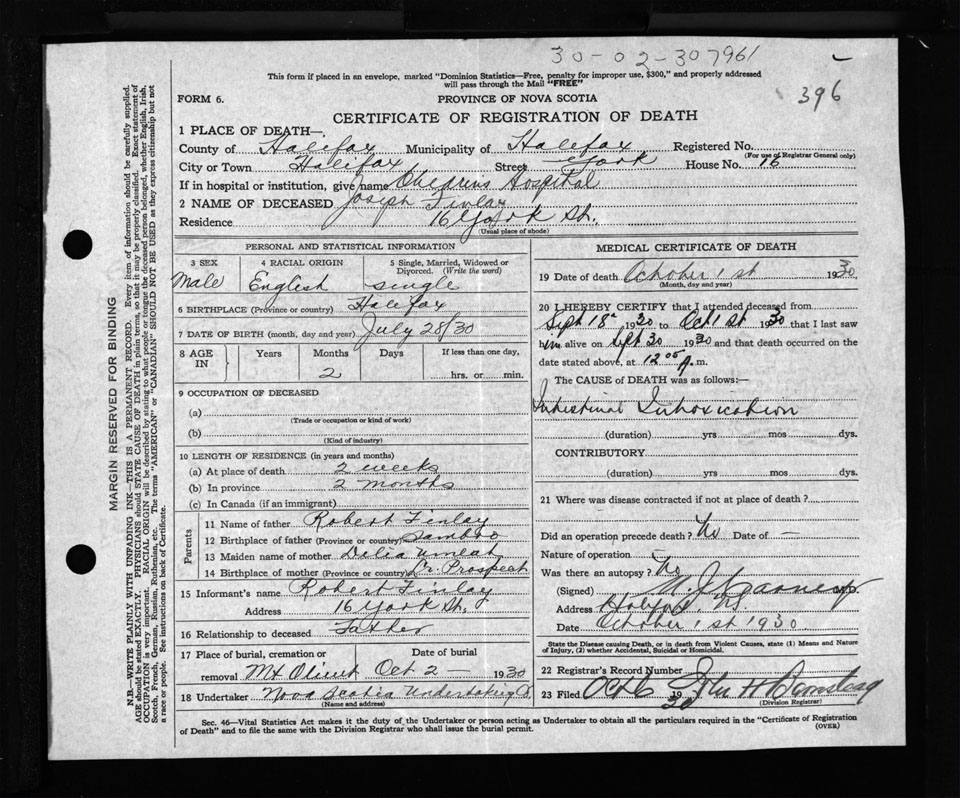 30-02-307961
This form if placed in an envelope, marked "Dominion Statistics—Free, penalty for improper use, $300," and properly addressed
will pass through the Mail "FREE"
396
FORM 6.
PROVINCE OF NOVA SCOTIA
CERTIFICATE OF REGISTRATION OF DEATH
1 PLACE OF DEATH—
County of Halifax Municipality of Halifax Registered No.
(For use of Registrar General only)
City or Town Halifax Street York House No. 16
If in hospital or institution, give name Childrens Hospital
2 NAME OF DECEASED Joseph Finlay
Residence 16 York St.
(Usual place of abode)
PERSONAL AND STATISTICAL INFORMATION
3 SEX 4 RACIAL ORIGIN 5 Single, Married, Widowed or
Divorced. (Write the word)
Male English single
6 BIRTHPLACE (Province or country) Halifax
7 DATE OF BIRTH (month, day and year) July 28/30
8 AGE IN Years Months Days If less than one day,
2 hrs. or min.
9 OCCUPATION OF DECEASED
(a)
(Trade or occupation or kind of work)
(b)
(Kind of industry)
10 LENGTH OF RESIDENCE (in years and months)
(a) At place of death 2 weeks
(b) In province 2 months
(c) In Canada (if an immigrant)
Parents
11 Name of father Robert Finlay
12 Birthplace of father (Province or country) Sambro
13 Maiden name of mother Delia Umlah
14 Birthplace of mother (Province or country) Lr. Prospect
15 Informant's name Robert Finlay
Address 16 York St.
16 Relationship to deceased Father
17 Place of burial, cremation or Date of burial
removal Mt Olivet Oct 2 — 1930
18 Undertaker Nova Scotia Undertaking Co
(Name and address)
MEDICAL CERTIFICATE OF DEATH
19 Date of death October 1st 1930
(Month, day and year)
20 I HEREBY CERTIFY that I attended deceased from
Sept 18th 1930 to Oct 1st 1930 that I last saw
him alive on Sept 30 1930 and that death occurred on the
date stated above, at 12.05 A. m.
The CAUSE OF DEATH was as follows:—
Intestinal Intoxication
(duration) yrs mos dys.
CONTRIBUTORY
(duration) yrs mos dys.
21 Where was disease contracted if not at place of death?
Did an operation precede death? No Date of —
Nature of operation —
Was there an autopsy? No
(Signed) M.D.
Address Halifax, NS
Date October 1st 1930
State the Disease causing Death, or in death from Violent Causes, state (1) Means and Nature
of Injury, (2) whether Accidental, Suicidal or Homicidal.
22 Registrar's Record Number
23 Filed Oct 6 1930 John H
(Division Registrar)
Sec. 46—Vital Statistics Act makes it the duty of the Undertaker or person acting as Undertaker to obtain all the particulars required in the "Certificate of Registration
of Death" and to file the same with the Division Registrar who shall issue the burial permit.
(OVER)
MARGIN RESERVED FOR BINDING
N.B.—WRITE PLAINLY WITH UNFADING INK—THIS IS A PERMANENT RECORD. Every item of information should be carefully supplied.
AGE should be stated EXACTLY. PHYSICIANS should STATE CAUSE OF DEATH in plain terms, so that it may be properly classified. Exact statement of
OCCUPATION is very important. RACIAL ORIGIN will be described by stating to what people or tongue the deceased person belonged, whether English, Irish,
Scotch, French, German, Russian, Ruthenian, etc. The terms "AMERICAN" or "CANADIAN" SHOULD NOT BE USED as they express citizenship but not
a race or people. See instructions on back of Certificate.